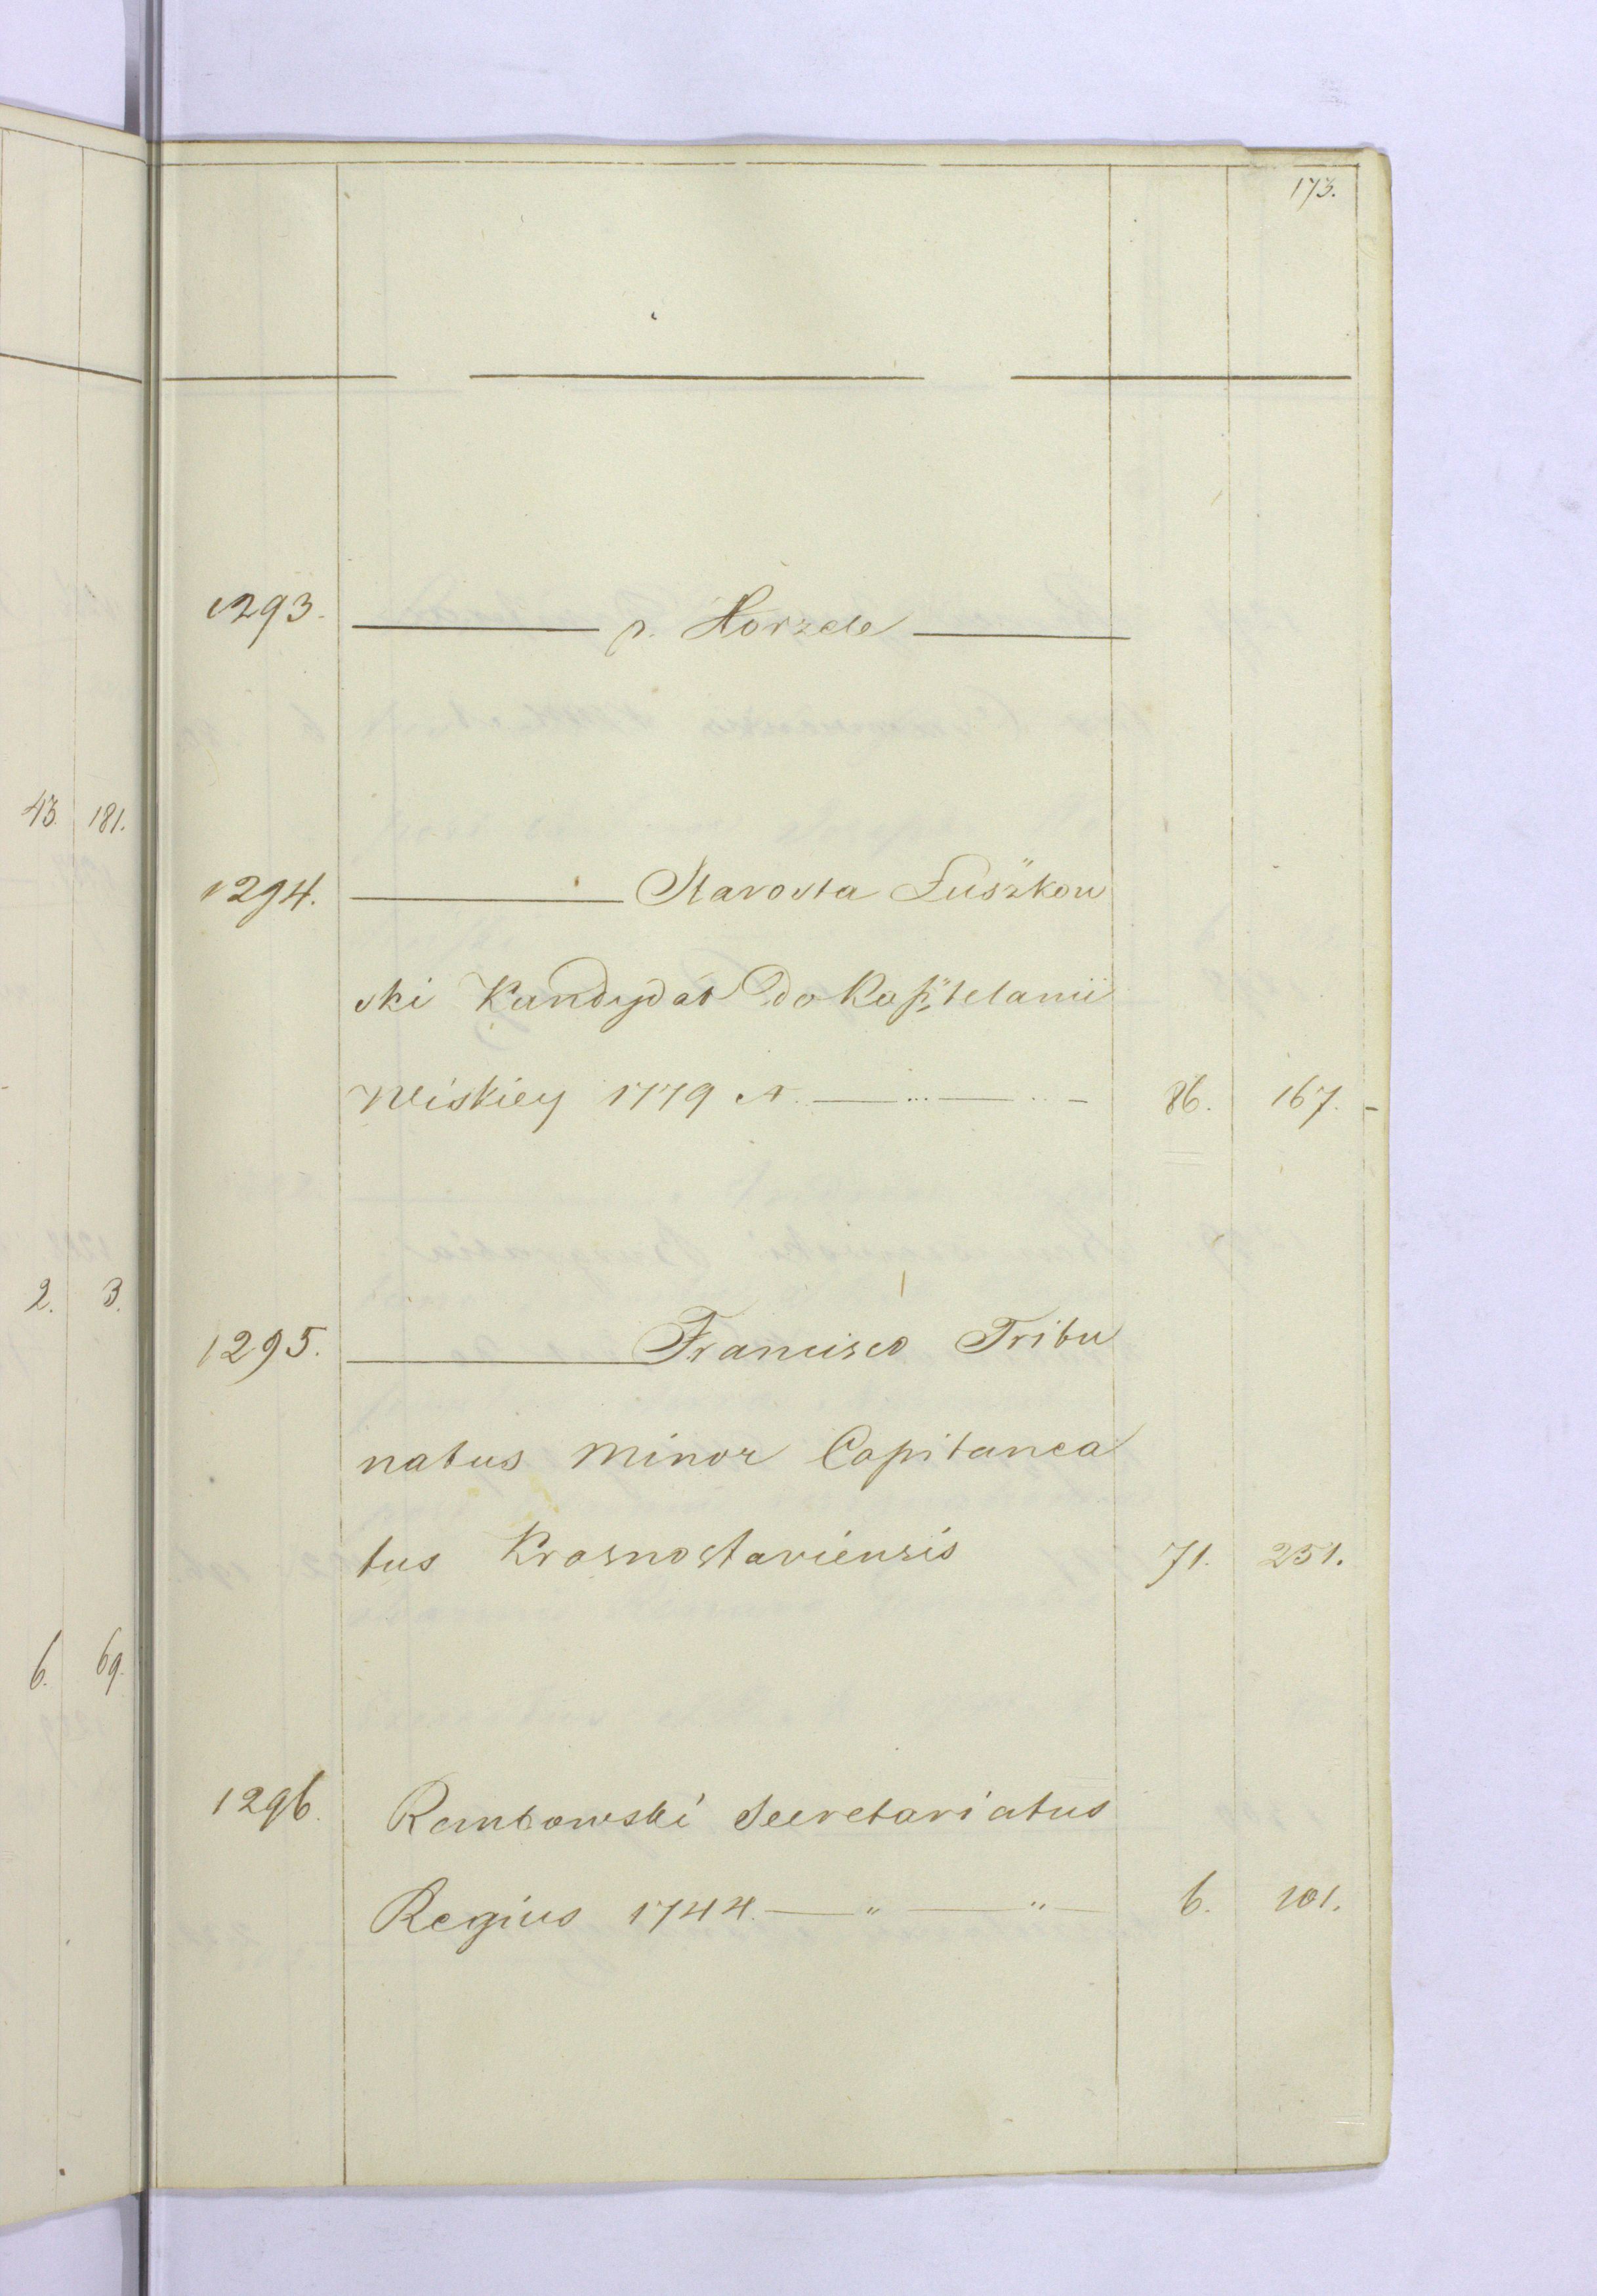 173.
1293. ——— p. Horzele ———
43. 181.
1294. ——— Starosta Łuszkow
ski Kandydat do Kasztelanii
Wiskiey 1779 r. — " — " — 86. 167. -
2. 3.
1295. ——— Francisco Tribu
natus Minor Capitanea
tus Krasnostaviensis 71. 251.
6. 69.
1296. Rembowski Secretariatus
Regius 1744. — " — " — 6. 101.